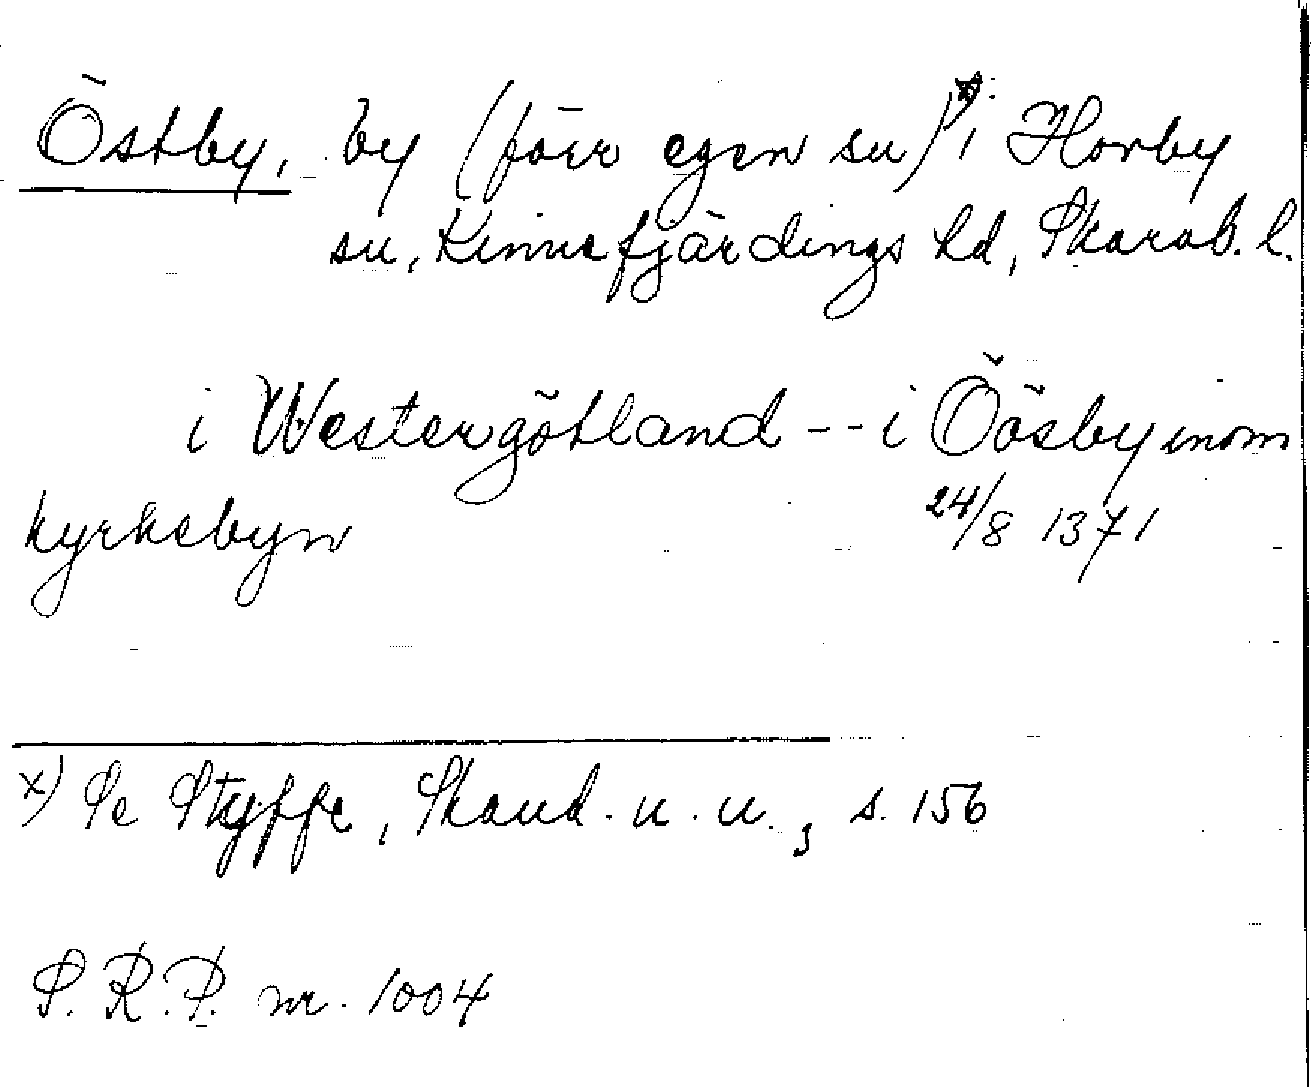 Östby, by (förr egen sn)x) i Horby
sn, Kinnefjärdings hd, Skarab. l.
i Westergötland -- i Öösby inom
kyrkebyn 24/8 1371
x) Se Styffe, Skand. u. u., s. 156
S. R. P. nr. 1004